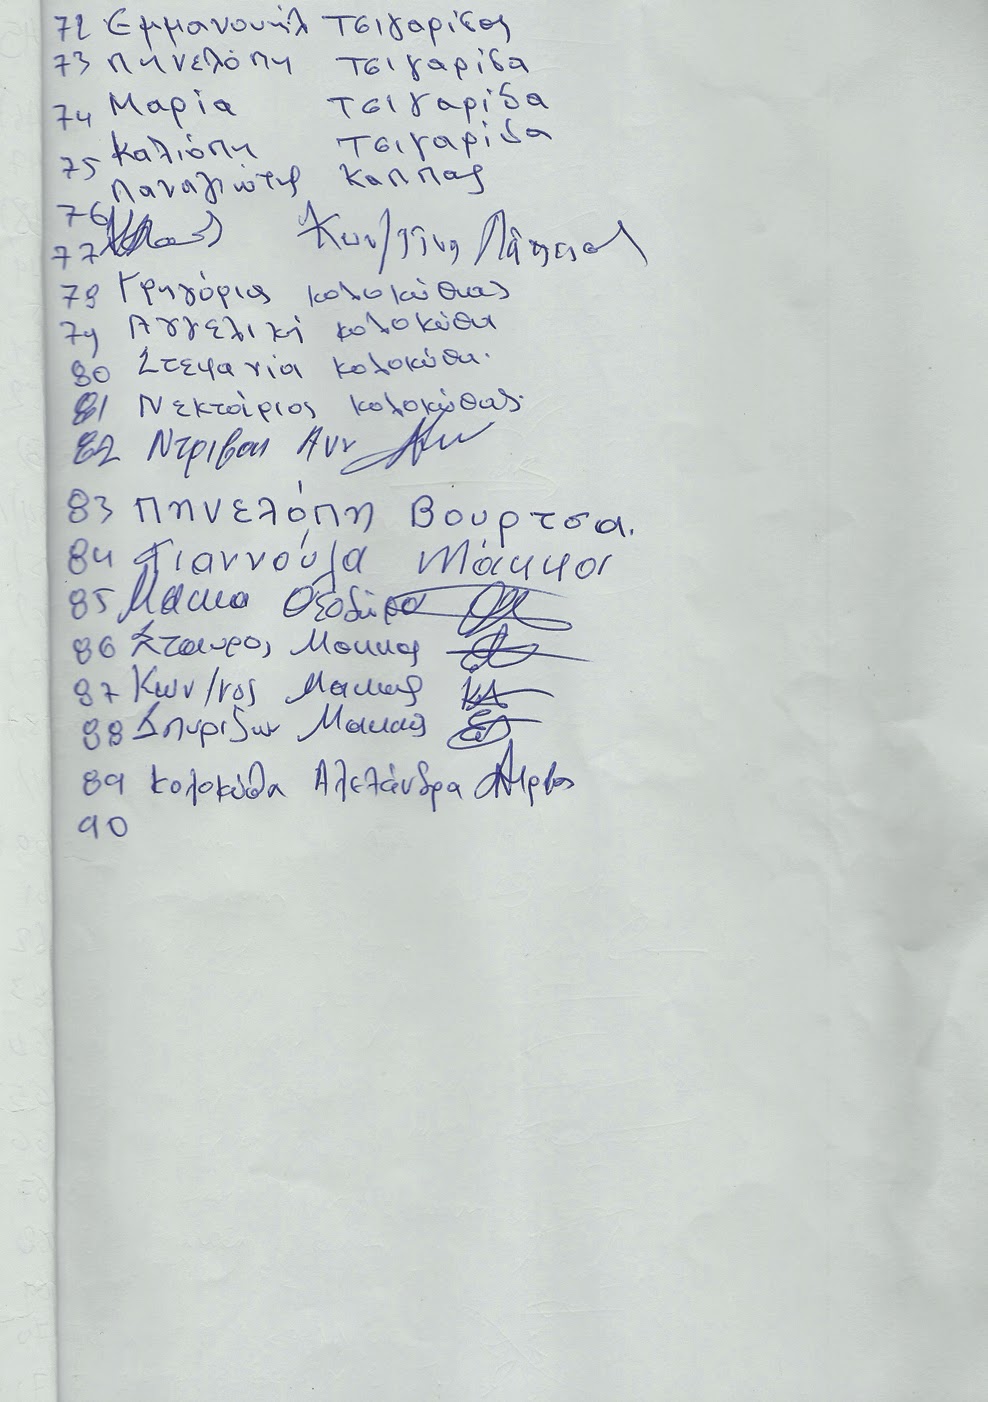 72 Εμμανουήλ Τσιγαρίδας
73 Πηνελόπη Τσιγαρίδα
74 Μαρία Τσιγαρίδα
75 Καλιόπη Τσιγαρίδα
76 Παναγιώτης Καππας
77
78 Γρηγόριος Κολοκύθας
79 Αγγελική Κολοκύθα
80 Στεφανία Κολοκύθα.
81 Νεκτάριος Κολοκύθας.
82
83 Πηνελόπη Βουρτσα.
84 Γιαννούλα
85 Μακκα Θεοδώρα
86 Σταυρος Μακκας
87 Κων/νος Μακκας
88 Σπυριδων Μακκας
89 Κολοκύθα Αλεξάνδρα
90